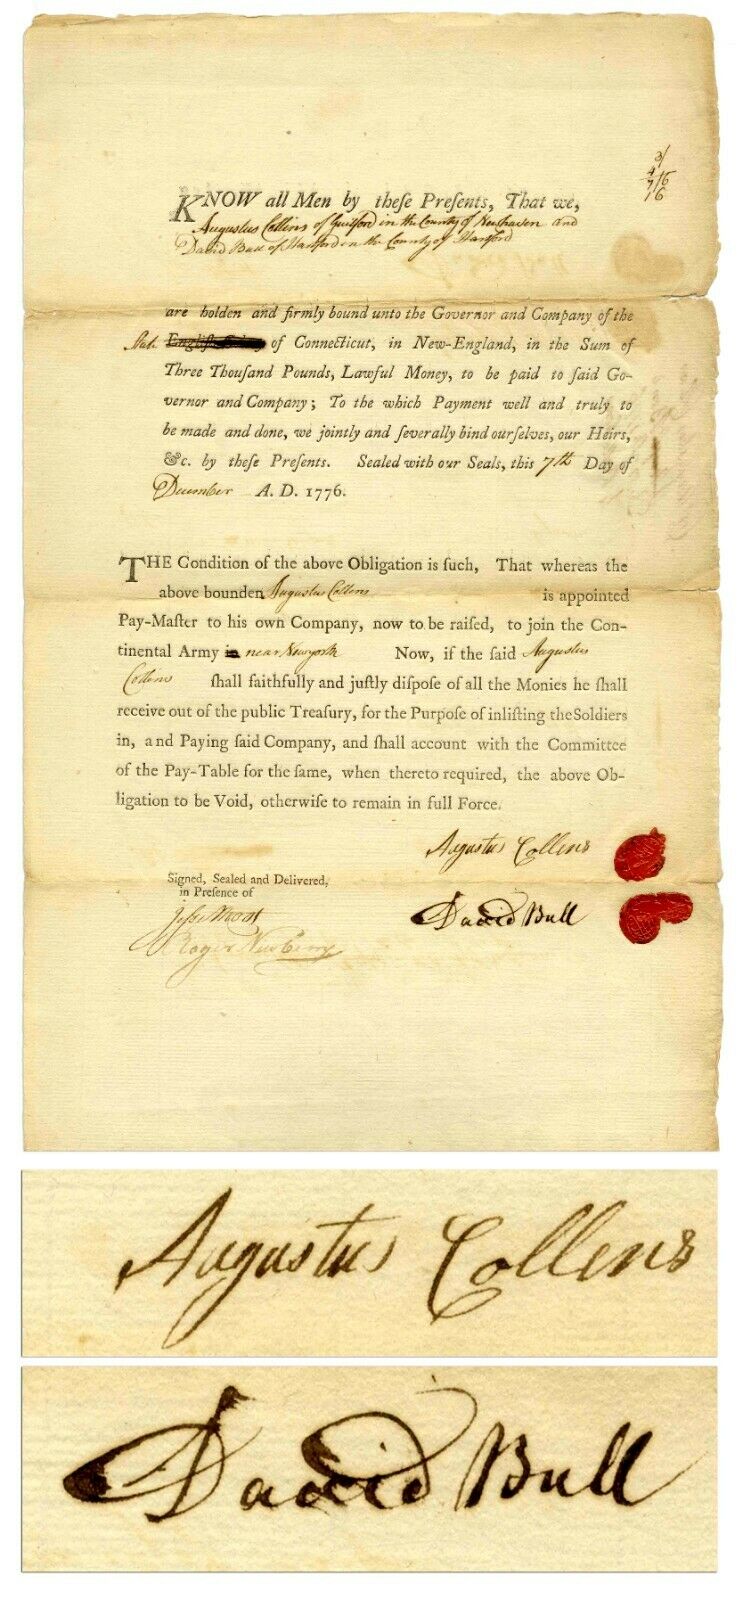 3/
4
7/6
1/6
KNOW all Men by theſe Preſents, That we,
Augustus Collins of Guilford in the County of Newhaven and
David Bull of Hartford in the County of Hartford
are holden and firmly bound unto the Governor and Company of the
State English Colony of Connecticut, in New-England, in the Sum of
Three Thouſand Pounds, Lawful Money, to be paid to ſaid Go-
vernor and Company; To the which Payment well and truly to
be made and done, we jointly and ſeverally bind ourſelves, our Heirs,
&c. by theſe Preſents. Sealed with our Seals, this 7th Day of
December A. D. 1776.
THE Condition of the above Obligation is ſuch, That whereas the
above bounden Augustus Collens is appointed
Pay-Maſter to his own Company, now to be raiſed, to join the Con-
tinental Army in near Newyork Now, if the ſaid Augustus
Collens ſhall faithfully and juſtly diſpoſe of all the Monies he ſhall
receive out of the public Treaſury, for the Purpoſe of inliſting the Soldiers
in, and Paying ſaid Company, and ſhall account with the Committee
of the Pay-Table for the ſame, when thereto required, the above Ob-
ligation to be Void, otherwiſe to remain in full Force.
Augustus Collens
Signed, Sealed and Delivered,
in Preſence of
David Bull
Jesse Root
Roger Newberry
Augustus Collens
David Bull